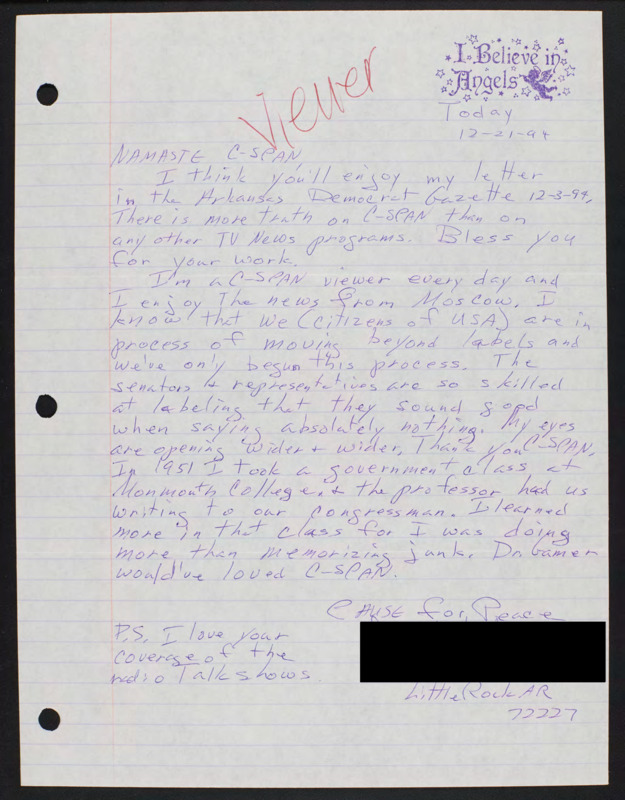 I Believe in
Angels
Viewer
Today
12-21-94
NAMASTE C-SPAN,
I think you'll enjoy my letter
in the Arkansas Democrat Gazette 12-3-94,
There is more truth on C-SPAN than on
any other TV News programs. Bless you
for your work.
I'm a C-SPAN viewer every day and
I enjoy The news from Moscow. I
know that we (citizens of USA) are in
process of moving beyond labels and
we've only begun this process. The
senators & representatives are so skilled
at labeling that they sound good
when saying absolutely nothing. My eyes
are opening wider + wider, Thank you C-SPAN.
In 1951 I took a government class at
Monmouth College, & the professor had us
writing to our congressman. I learned
more in that class for I was doing
more than memorizing junk. Dr. Gamer
would've loved C-SPAN.
CAUSE for Peace
P.S. I love your
coverage of the
radio Talk shows.
Little Rock AR
72227